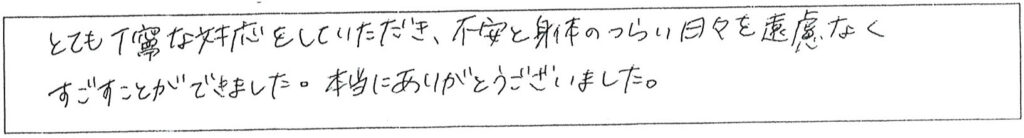 とても丁寧な対応をしていただき、不安と身体のつらい日々を遠慮なく
すごすことができました。本当にありがとうございました。